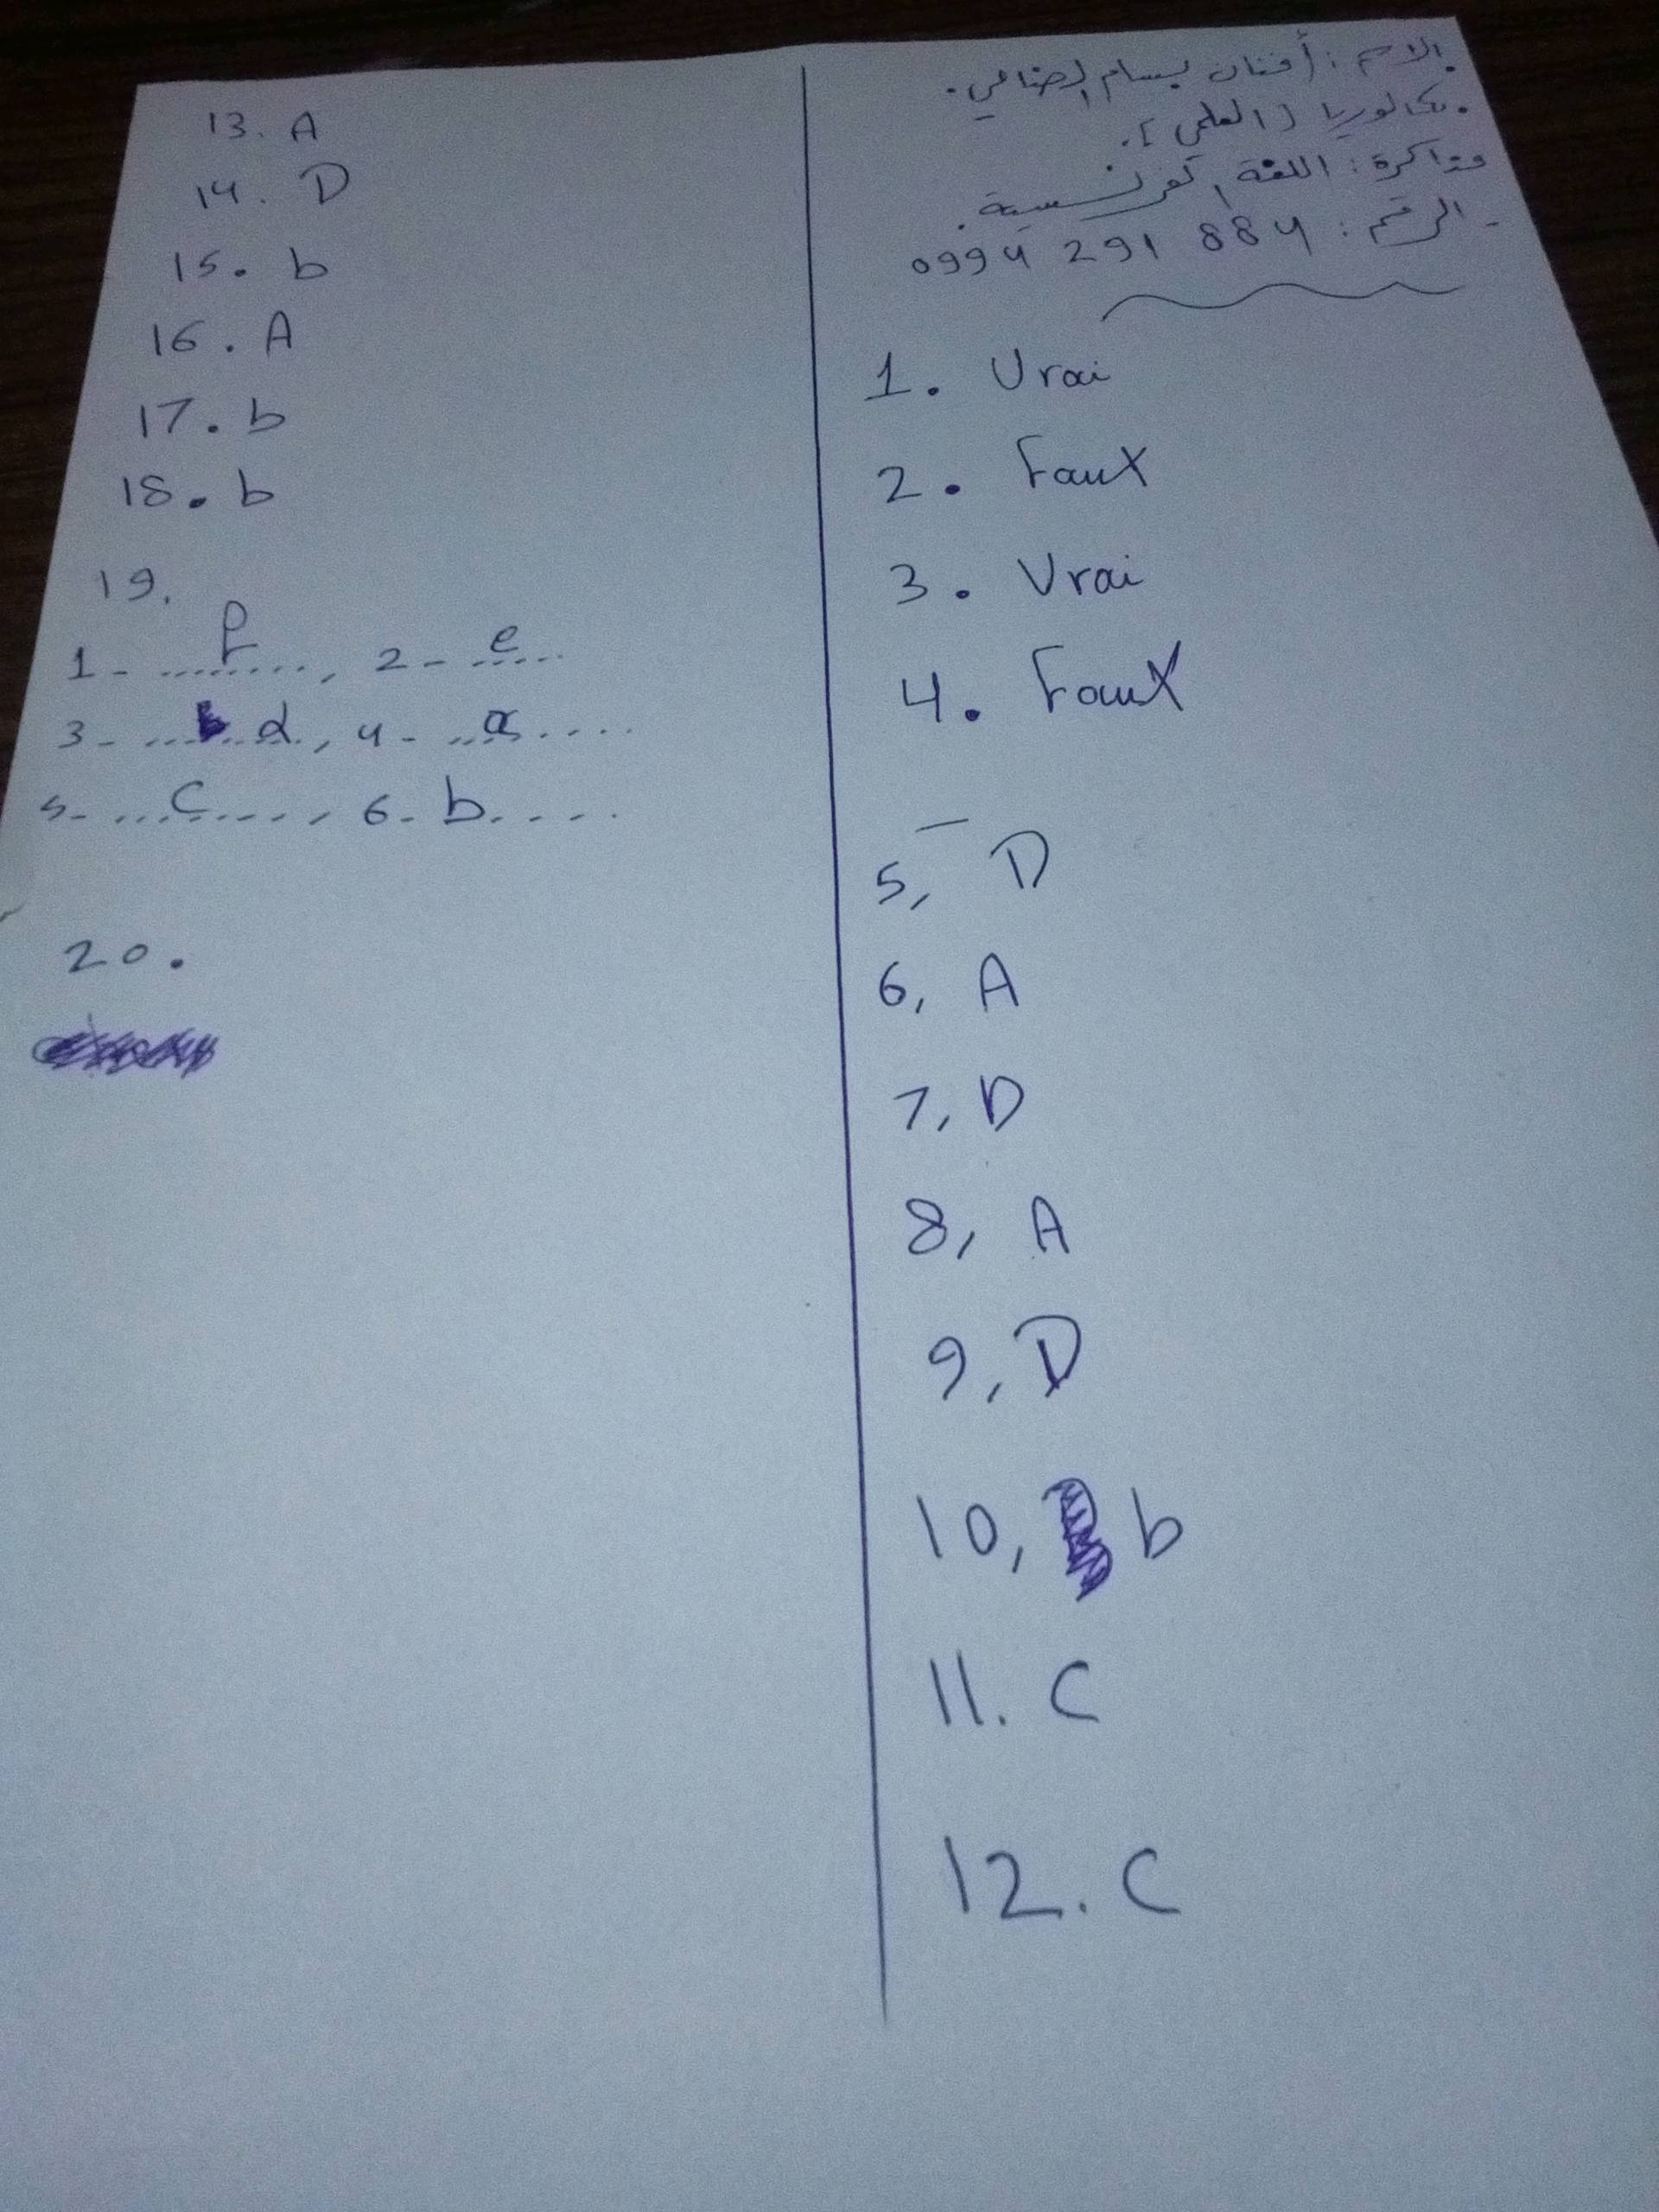 الاسم : أفنان بسام الصناعي .
. بكالوريا (العلمي ) .
مذاكرة : اللغة الفرنسية .
- الرقم : 0994 291 884
1. Vrai
2. Faux
3. Vrai
4. Faux
5, D
6, A
7, D
8, A
9, D
10, b
11. C
12. C
13. A
14. D
15. b
16. A
17. b
18. b
19.
1- ....f...., 2- ..e...
3- ....d., 4- ...a....
5- ...c...., 6- b....
20.